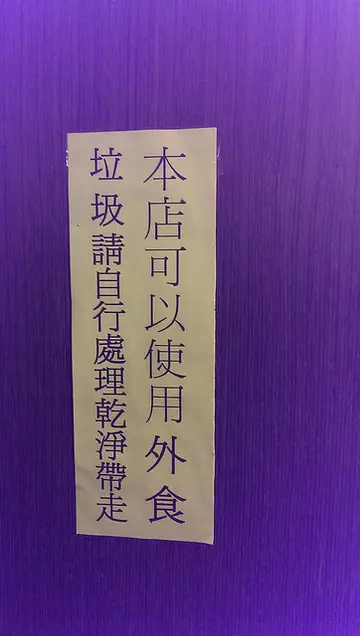 本店可以使用外食
垃圾請自行處理乾淨帶走